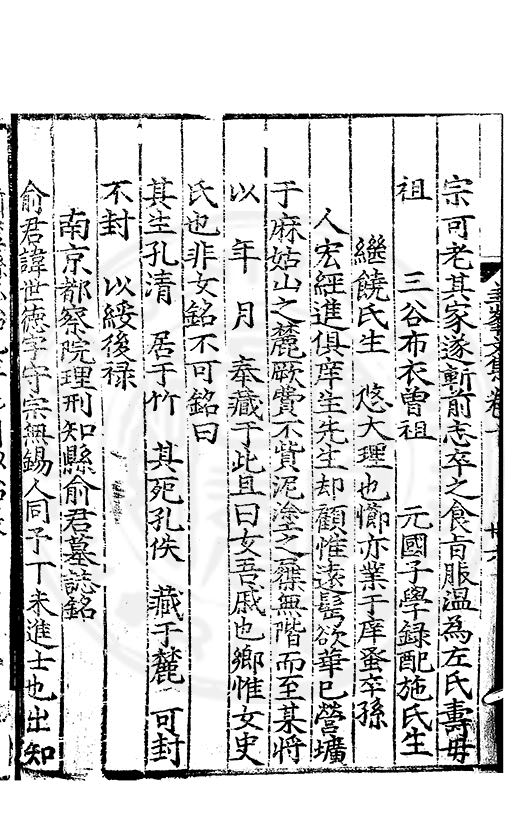 宗可老其家遂蘄前志卒之食旨賬溫為左氏壽毋
祖　三谷布衣曾祖　元國子學録配施氏生
繼饒氏生　悠大理也懨亦業于庠蚤卒孫
人宏經進俱庠生先生却顧惟遠髩欲華已營壙
于麻姑山之麓厥貲不貲泥塗之蘽無階而至某將
以　年　月　奉藏于此且曰女吾戚也鄉惟女史
氏也非女銘不可銘曰
其生孔清　居于竹　其死孔佚　藏于麓　可封
不封　以綏後禄
南京都察院理刑知縣俞君墓誌銘
俞君諱世德字守宗無錫人同予丁未進士也出知